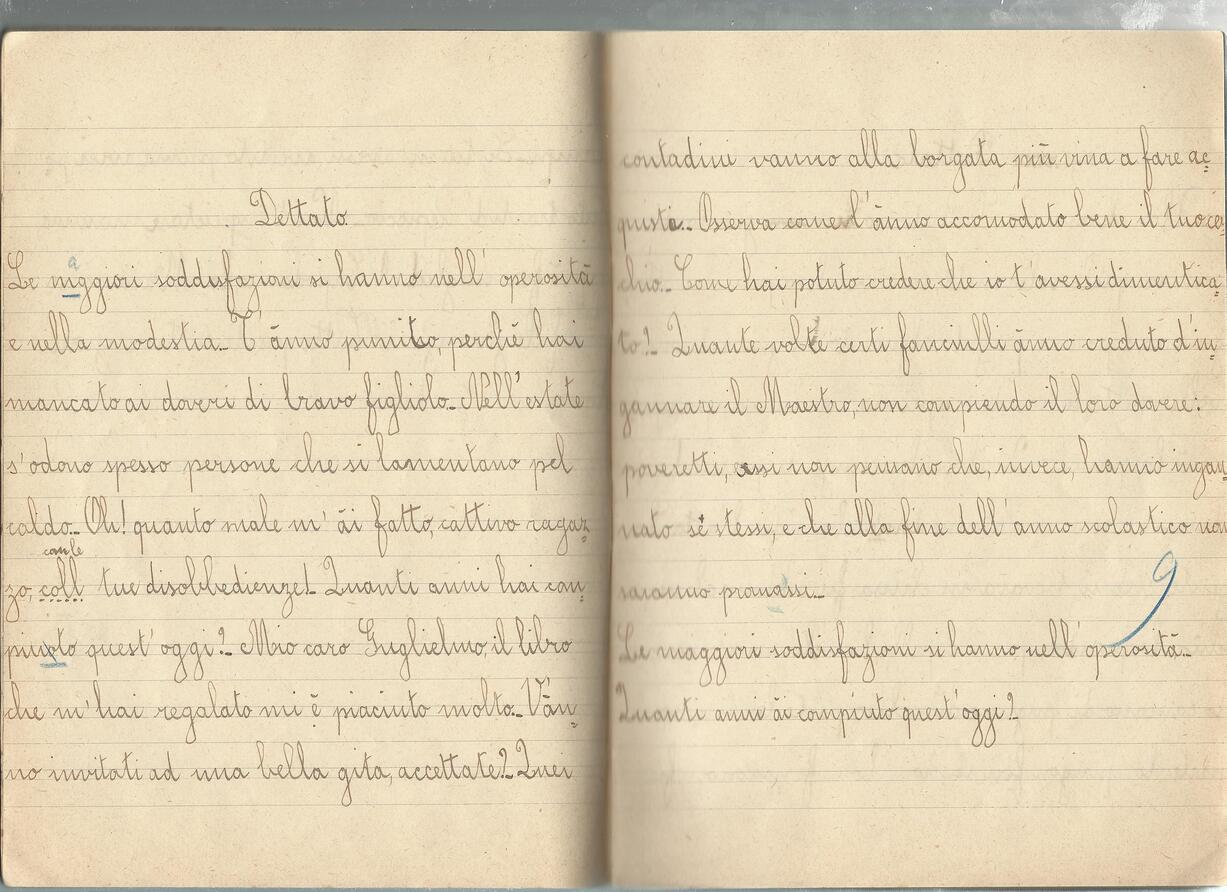 Dettato.
a
Le mggiori soddisfazioni si hanno nell' operosità
e nella modestia._ T' ànno punito, perchè hai
mancato ai doveri di bravo figliolo._ Nell' estate
s'odono spesso persone che si lamentano pel
caldo._ Oh! quanto male m' ài fatto, cattivo ragaz=
con le
zo, coll tue disobbedienze!_ Quanti anni hai com=
piuto quest' oggi?_ Mio caro Guglielmo, il libro
che m' hai regalato mi è piaciuto molto._ V'àn=
no invitati ad una bella gita, accettate?_ Quei
contadini vanno alla borgata più vina a fare ac=
quisti._ Osserva come l' ànno accomodato bene il tuo cer=
chio._ Come hai potuto credere che io t' avessi dimentica=
to?_ Quante volte certi fanciulli ànno creduto d' in=
gannare il Maestro, non compiendo il loro dovere:
poveretti, essi non pensano che, invece, hanno ingan=
nato sè stessi, e che alla fine dell' anno scolastico non
saranno promossi._
9
Le maggiori soddisfazioni si hanno nell' operosità._
Quanti anni ài compiuto quest' oggi?_